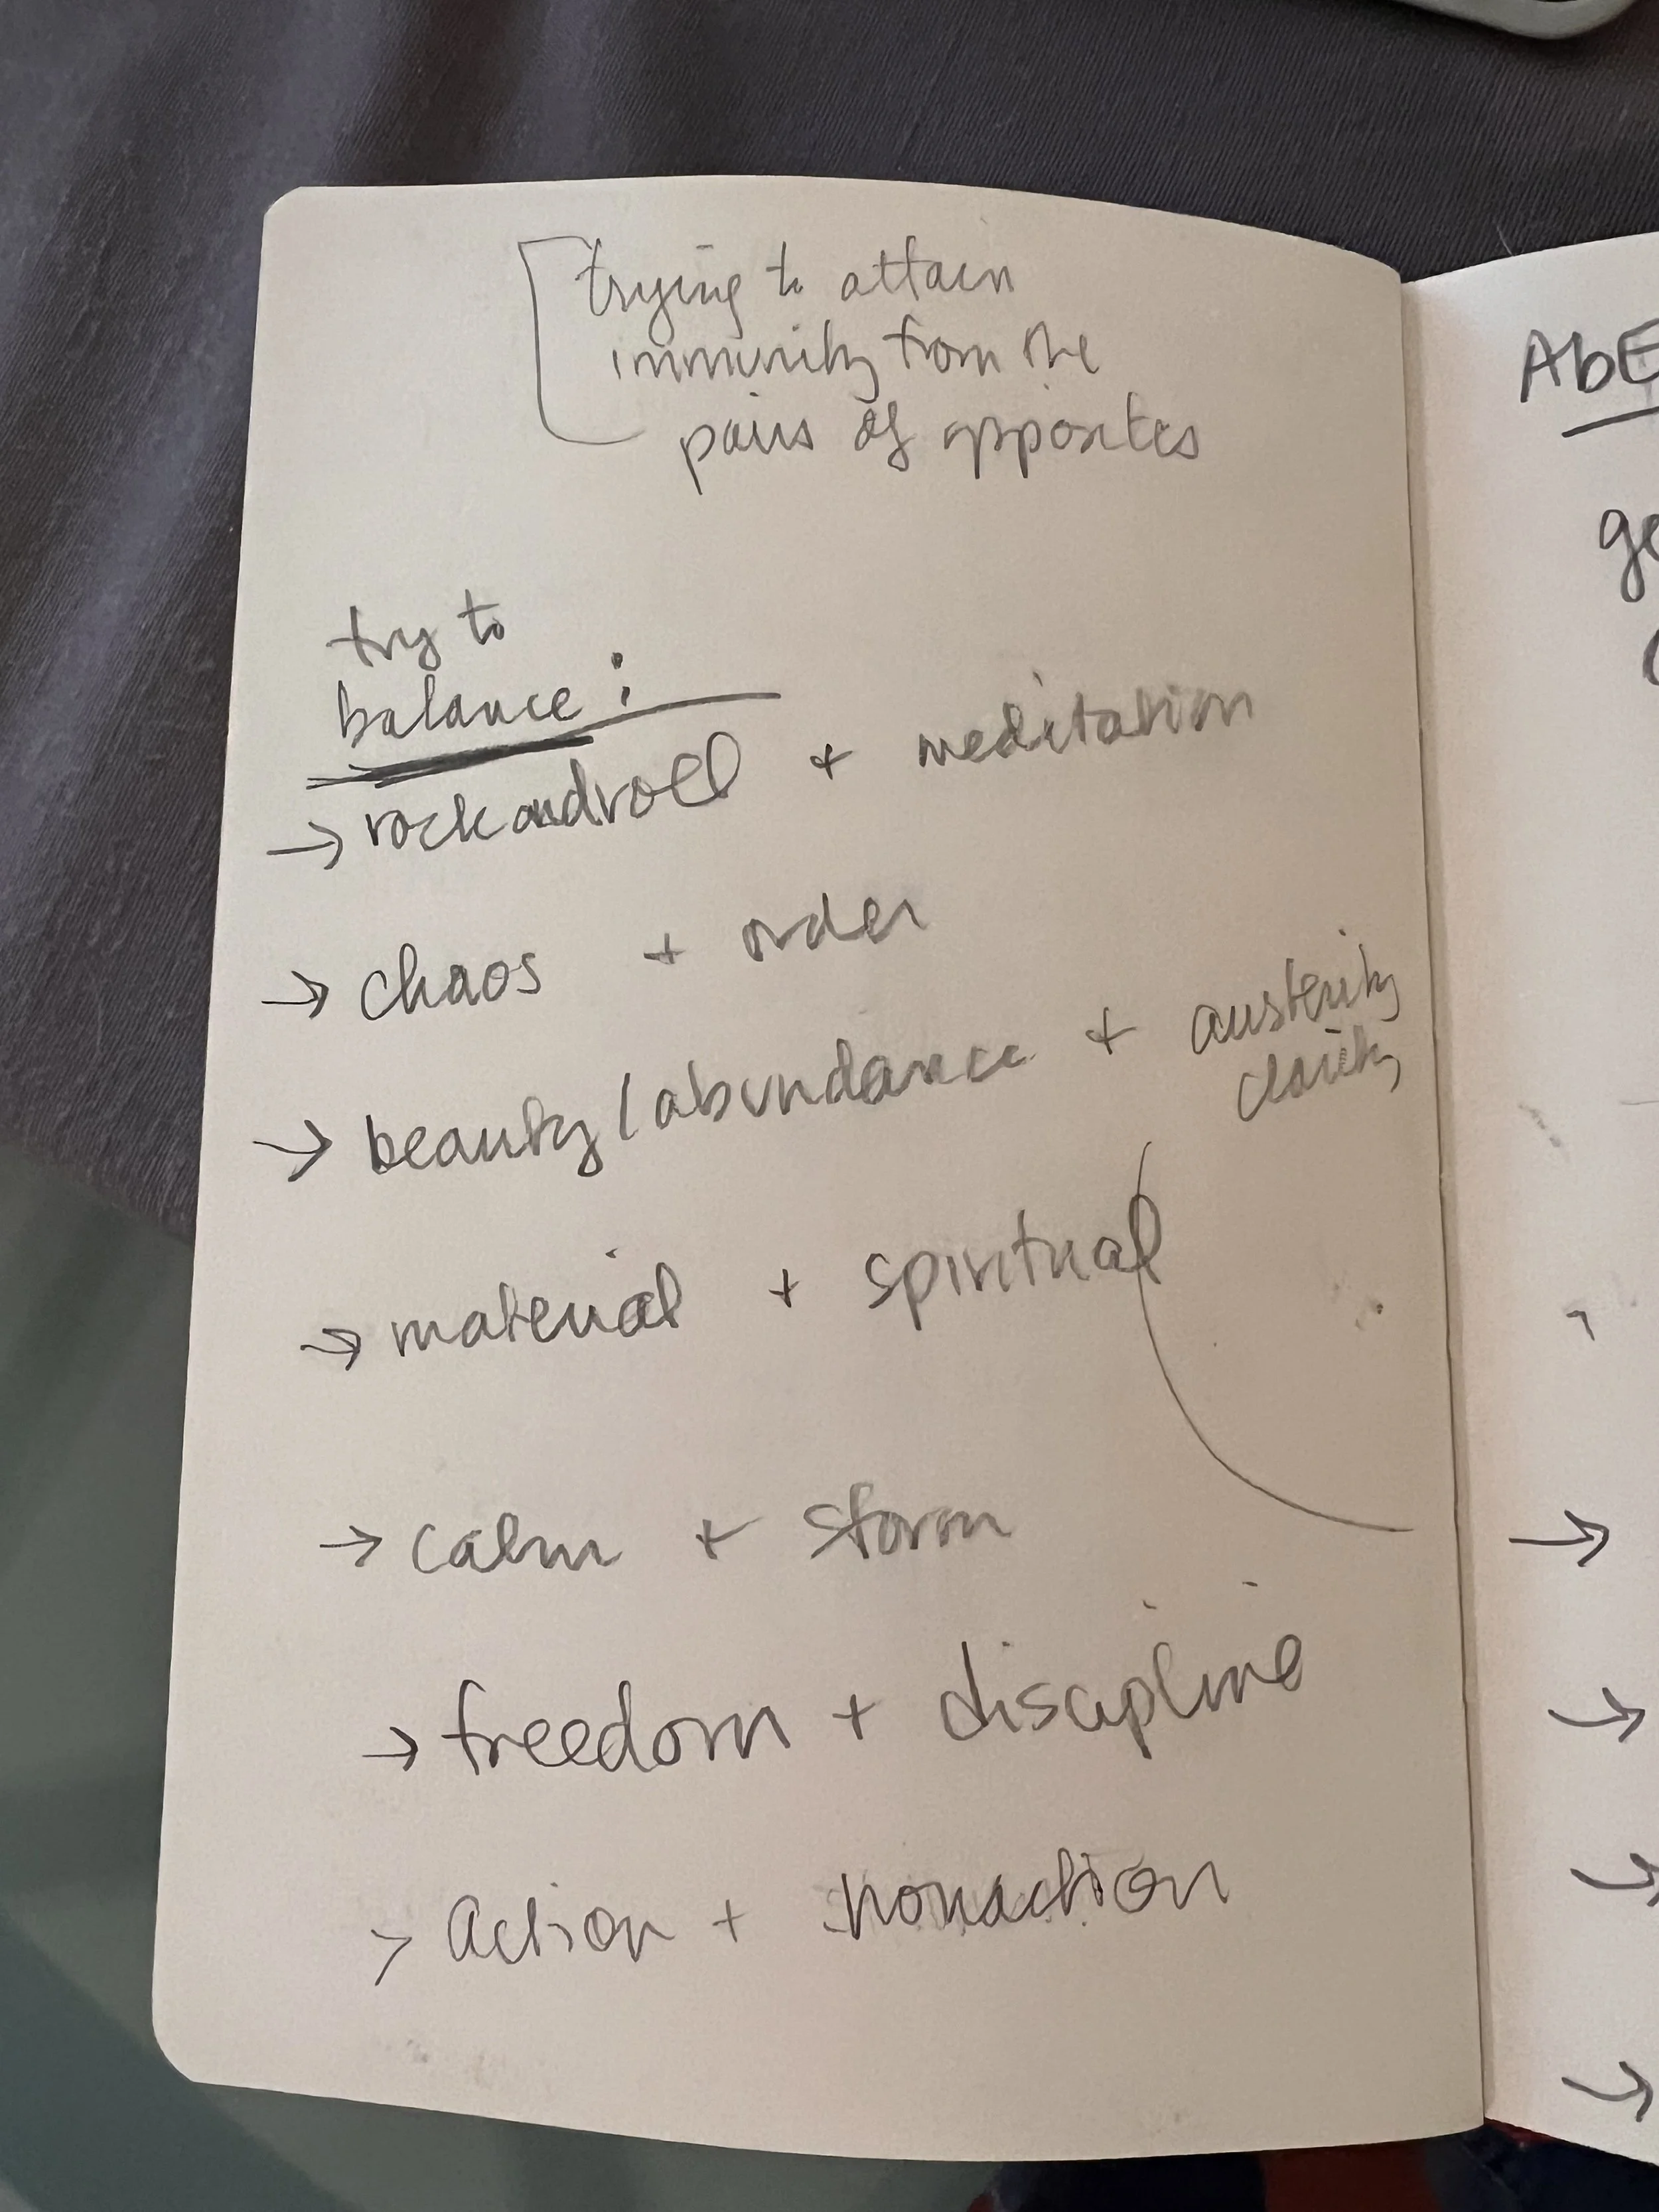 trying to attain
immunity from the
pairs of opposites
try to
balance:
→ rockandroll + meditation
→ chaos + order
→ beauty/abundance + austerity
clarity
→ material + spiritual
→ calm + storm
→ freedom + discipline
> action + nonaction
AbE
ge